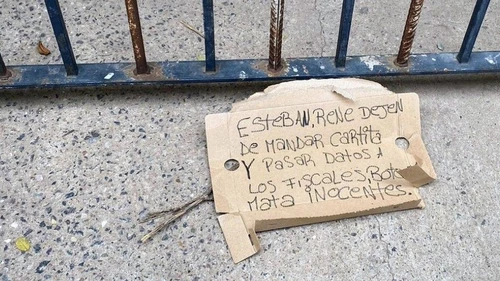 ESTEBAN, RENE DEJEN
DE MANDAR CARTITA
Y PASAR DATOS A
LOS FISCALES, ROTO
MATA INOCENTES.